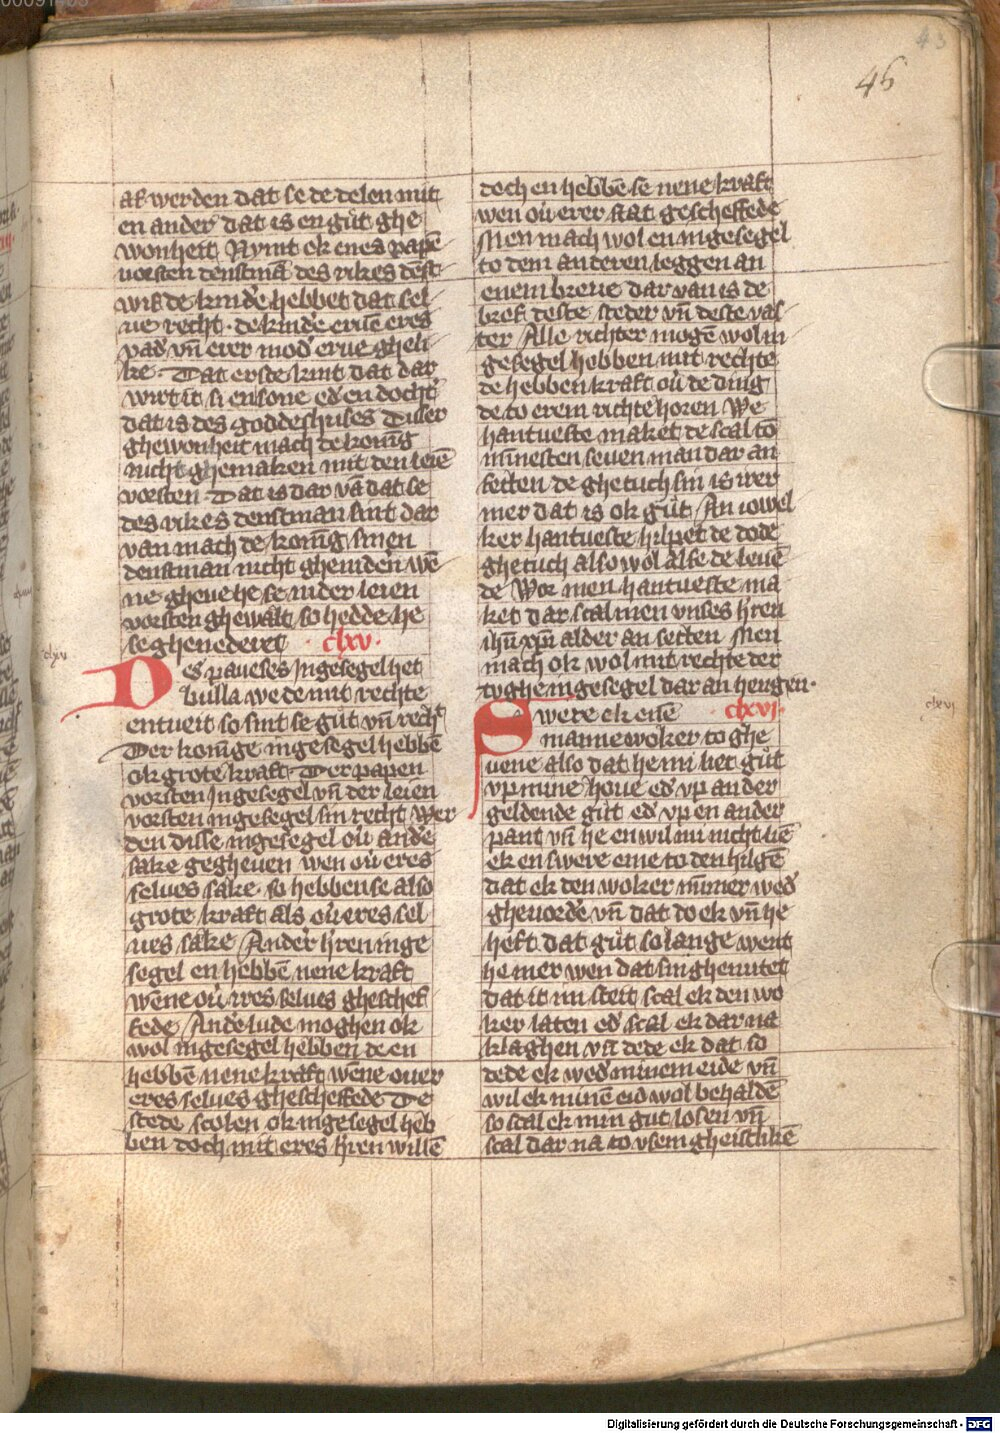 45
46
af werden dat se de delen mit
en ander dat is en gůt ghe
wonheit Nymt ok enes papē
vorsten denstmā des rikes dēst
wif de kindˀe hebbet dat sel
ue recht · de kindˀe eruē eres
vadˀ vn̄ erer modˀ erue gheli
ke Dat erste kint dat dar
wirt it si en sone edˀ en dochtˀ
dat is des goddeshuses Disser
ghewonheit mach de konīg
nicht ghemaken mit den leiē
vorsten Dat is dar vā dat se
des rikes denstman sint dar
van mach de konīg sinen
denstman nicht ghenidˀen wē
ne gheue he se nider leien
vorsten ghewalt so hedde he
se ghenederet · clxv ·
Des paueses Ingesegel het
bulla we de mit rechte
entueit so sint se gůt vn̄ rechtˀ
Der konīge ingesegel hebbē
ok grote kraft Der papen
vorsten Ingesegel vn̄ der leien
vorsten ingesegel sin recht Wer
den disse ingesegel ou̇ andˀe
sake gegheuen wen ou̇ eres
selues sake · so hebben se also
grote kraft als ou̇ eres sel
ues sake Ander hˀren inge
segel en hebbē nene kraft
wēne ou̇ ires selues gheschef
fede Andˀe lude moghen ok
wol ingesegel hebben de en
hebbē nene kraft wēne ouer
eres selues gheschefede De
stede scolen ok ingesegel heb
ben doch mit eres hˀren willē
doch en hebbē se nene kraft
wen ou̇ erer stat gescheffede
Men mach wol en ingesegel
to dem anderen leggen an
enem breue dar van is de
bref deste steder vn̄ deste vas
ter Alle richter mogē wol in
gesegel hebben mit rechte
de hebben kraft ou̇ de ding
de to erem richte horen We
hantueste maket de scal to
mīnesten seuen man dar an
setten de ghetuch sin is iver
mer dat is ok gůt An iowel
ker hantueste hilpet de dode
ghetuch also wol alse de leuē
de Wor men hantueste ma
ket dar scal men vnses hˀren
ihū xp̄i alder an setten Men
mach ok wol mit rechte der
tughe ingesegel dar an hengen ·
Swere ek enē · clxvi ·
manne woker to ghe
uene also dat he mi liet gůt
vp mine houe edˀ vp ander
geldende gůt edˀ vp en ander
pant vn̄ he en wil mi nicht liē
ek en swere eme to den hilgē
dat ek den woker nūmer wedˀ
gheuordˀe vn̄ dat do ek vn̄ he
heft dat gůt so lange went
he mer wen dat sin ghenutet
dat it im steit scal ek den wo
ker laten edˀ scal ek dar na
klaghen vn̄ dede ek dat so
dede ek wedˀ minem eide vn̄
wil ek minē eid wol behaldē
so scal ek min gut losen vn̄
scal dar na to vsem gheistlikē
clxvi
Digitalisierung gefördert durch die Deutsche Forschungsgemeinschaft - DFG